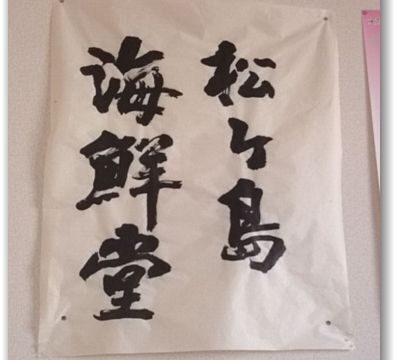 松ヶ島
海鮮堂